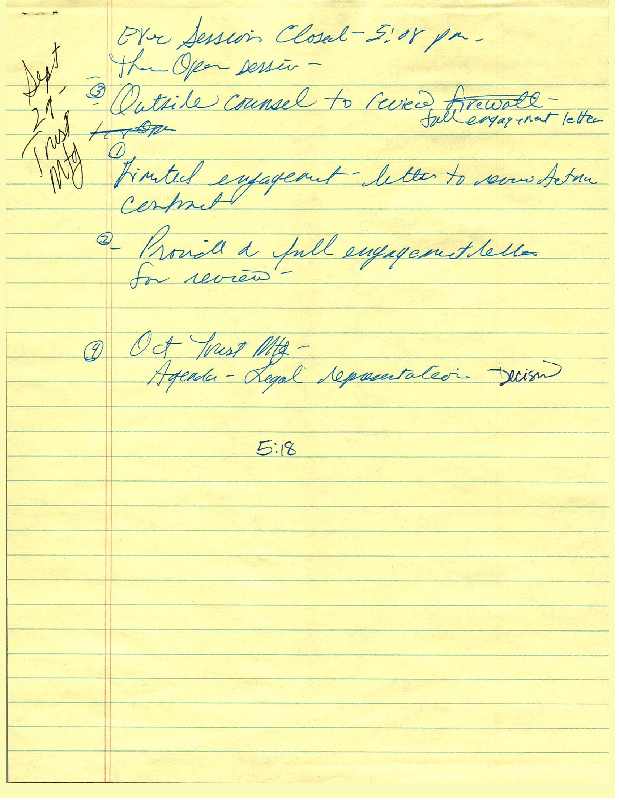 Sept
29-
Trust
Mtg
Exec Session Closed - 5:08 pm -
then Open session -
③ Outside counsel to review firewall -
full engagement letter
①
Limited engagement - letter to review Aetna
contract
② - Provide a full engagement letter
for review -
④ Oct Trust Mtg -
Agenda - Legal representation - Decision
5:18